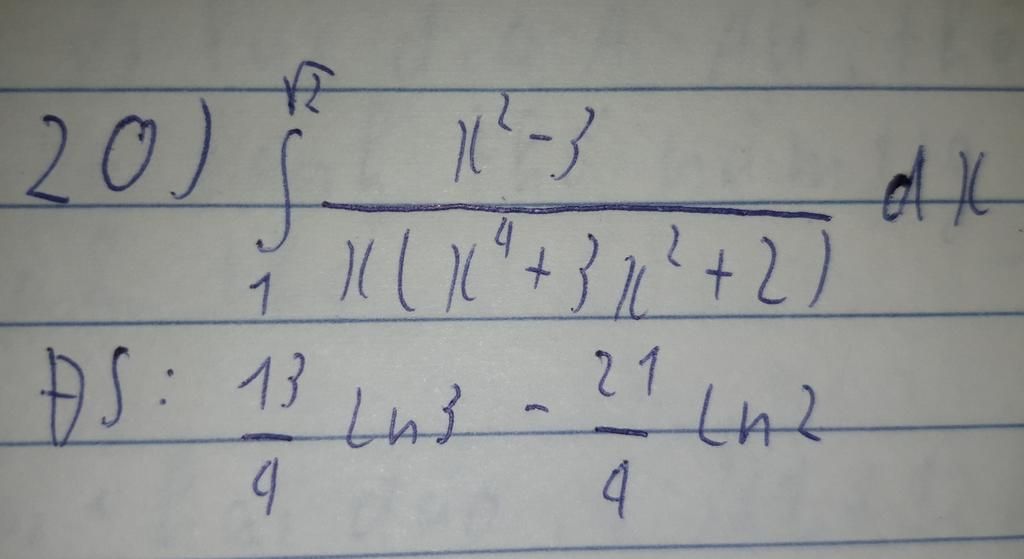 20) ∫₁^√2 (x² - 3) / (x(x⁴ + 3x² + 2)) dx
ĐS: 13/4 ln3 - 21/4 ln2